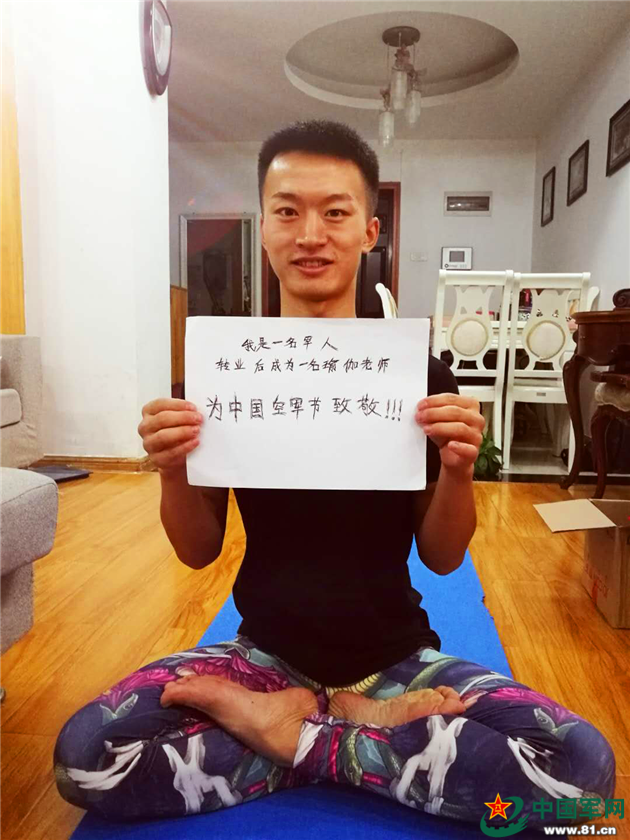 我是一名军人
转业后成为一名瑜伽老师
为中国空军节致敬!!!
中国军网
www.81.cn